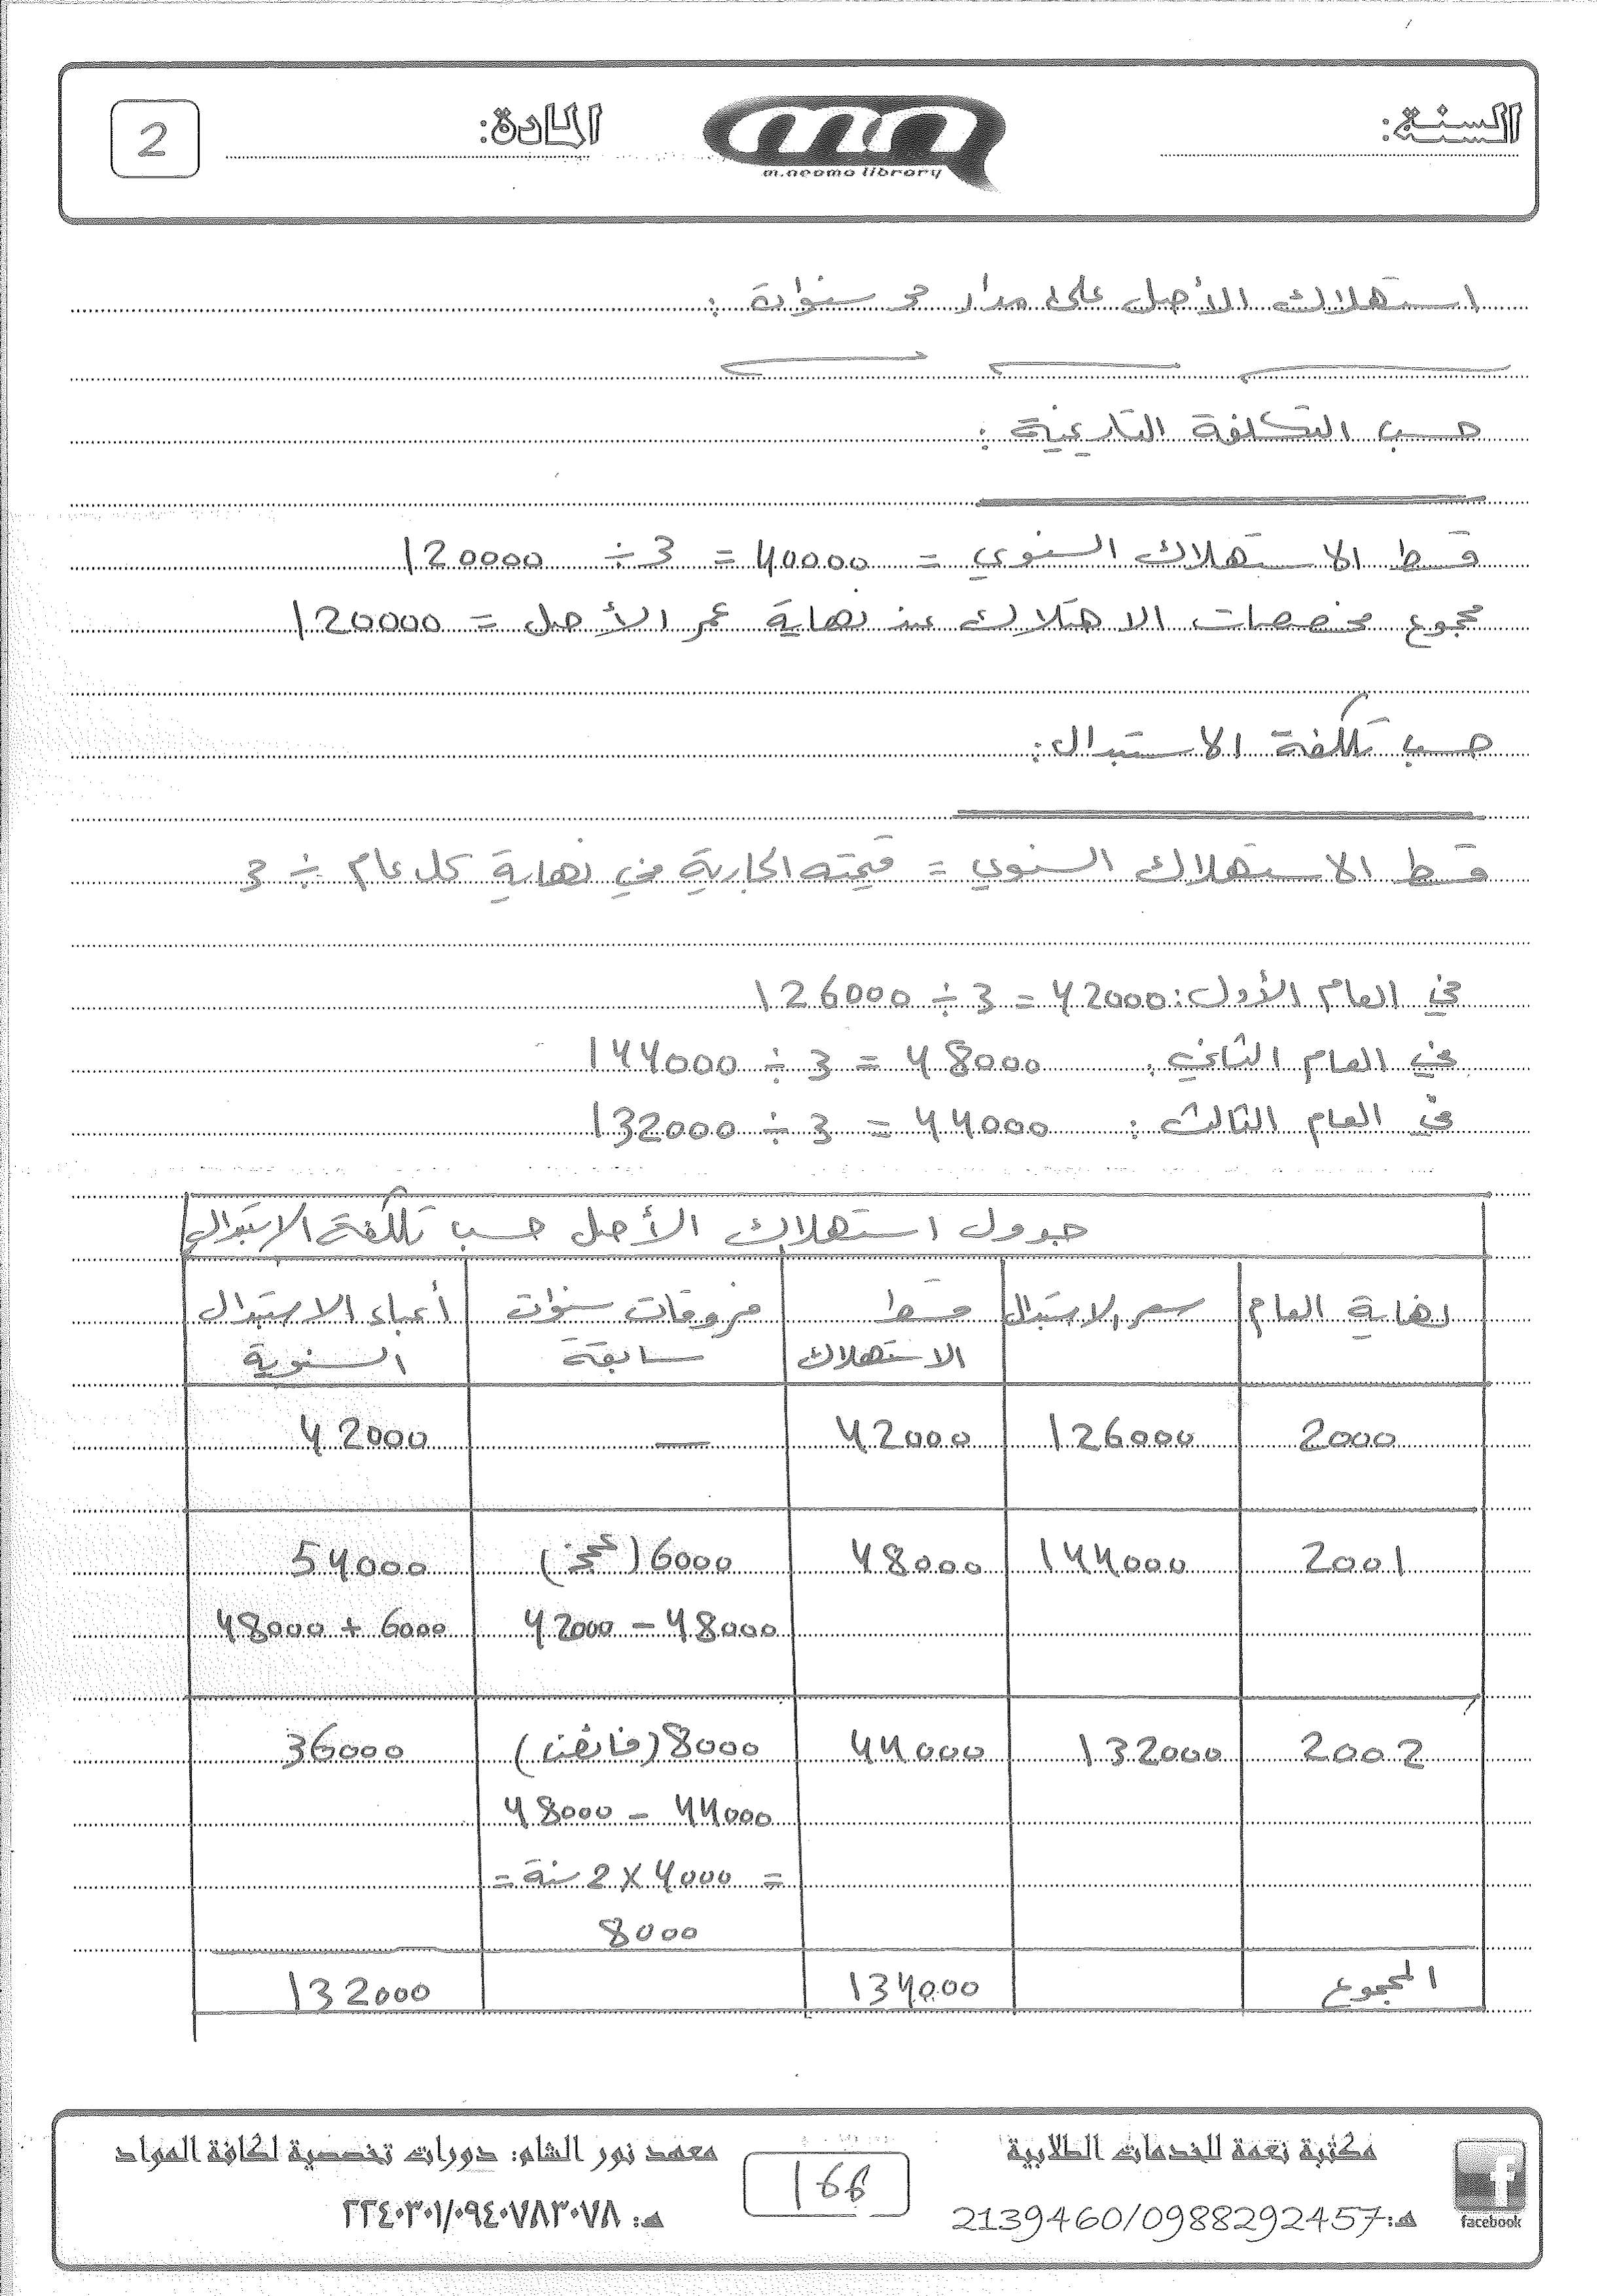 السنة:
m.neama library
المادة:
2
استهلاك الأصل على مدار 3 سنوات :
حسب التكلفة التاريخية :
قسط الاستهلاك السنوي = 40000 = 3 ÷ 120000
مجموع مخصصات الاهتلاك عند نهاية عمر الأصل = 120000
حسب تكلفة الاستبدال :
قسط الاستهلاك السنوي = قيمته الجارية في نهاية كل عام ÷ 3
في العام الأول : 42000 = 3 ÷ 126000
في العام الثاني : 48000 = 3 ÷ 144000
في العام الثالث : 44000 = 3 ÷ 132000
جدول استهلاك الأصل حسب تكلفة الاستبدال
نهاية العام سعر الاستبدال قسط الاستهلاك فروقات سنوات سابقة أعباء الاستبدال السنوية
2000 126000 42000 — 42000
2001 144000 48000 6000 (عجز) 54000
42000 - 48000 48000 + 6000
2002 132000 44000 8000 (فائض) 36000
48000 - 44000
= 4000 × 2 سنة =
8000
المجموع 134000 132000
facebook
مكتبة نعمة للخدمات الطلابية
هـ: 2139460/0988292457
166
معهد نور الشام: دورات تخصصية لكافة المواد
هـ: ٢٢٤٠٣٠١/٠٩٤٠٧٨٣٠٧٨